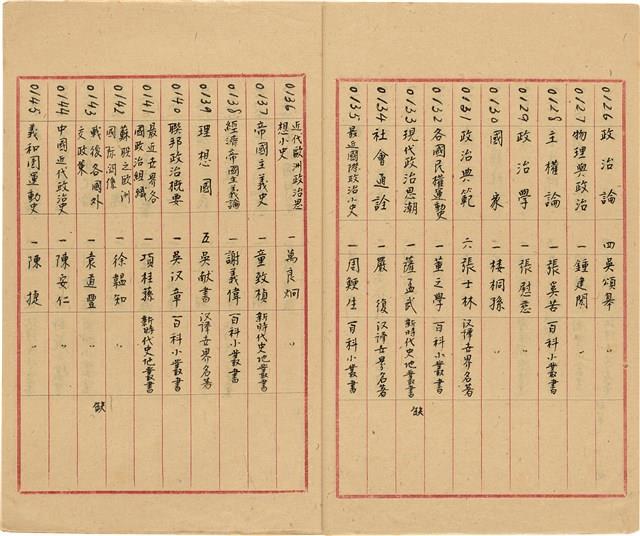 0126 政治論 四 吳頌皋
0127 物理與政治 一 鍾建閎
0128 主權論 一 張奚若 百科小叢書
0129 政治學 一 張慰慈
0130 國家 二 楼桐孫
0131 政治典範 六 張士林 汉譯世界名著
0132 各國民權運動史 一 董之學 百科小叢書
0133 現代政治思潮 一 薩孟武 新時代史地叢書 缺
0134 社會通詮 一 嚴復 汉譯世界名著
0135 最近國際政治小史 一 周鯁生 百科小叢書
0136 近代歐洲政治思想小史 一 萬良炯 〃
0137 帝國主義史 一 童致楨 新時代史地叢書
0138 經濟帝國主義論 一 謝義偉 百科小叢書
0139 理想國 五 吳献書 汉譯世界名著
0140 聯邦政治概要 一 吳汉章 百科小叢書
0141 最近世界各國政治組織 一 項桂蓀 新時代史地叢書
0142 蘇联之歐洲國际関係 一 徐韞知 〃
0143 戰後各國外交政策 一 袁道豐 〃 缺
0144 中國近代政治史 一 陳安仁 〃
0145 義和团運動史 一 陳捷 〃